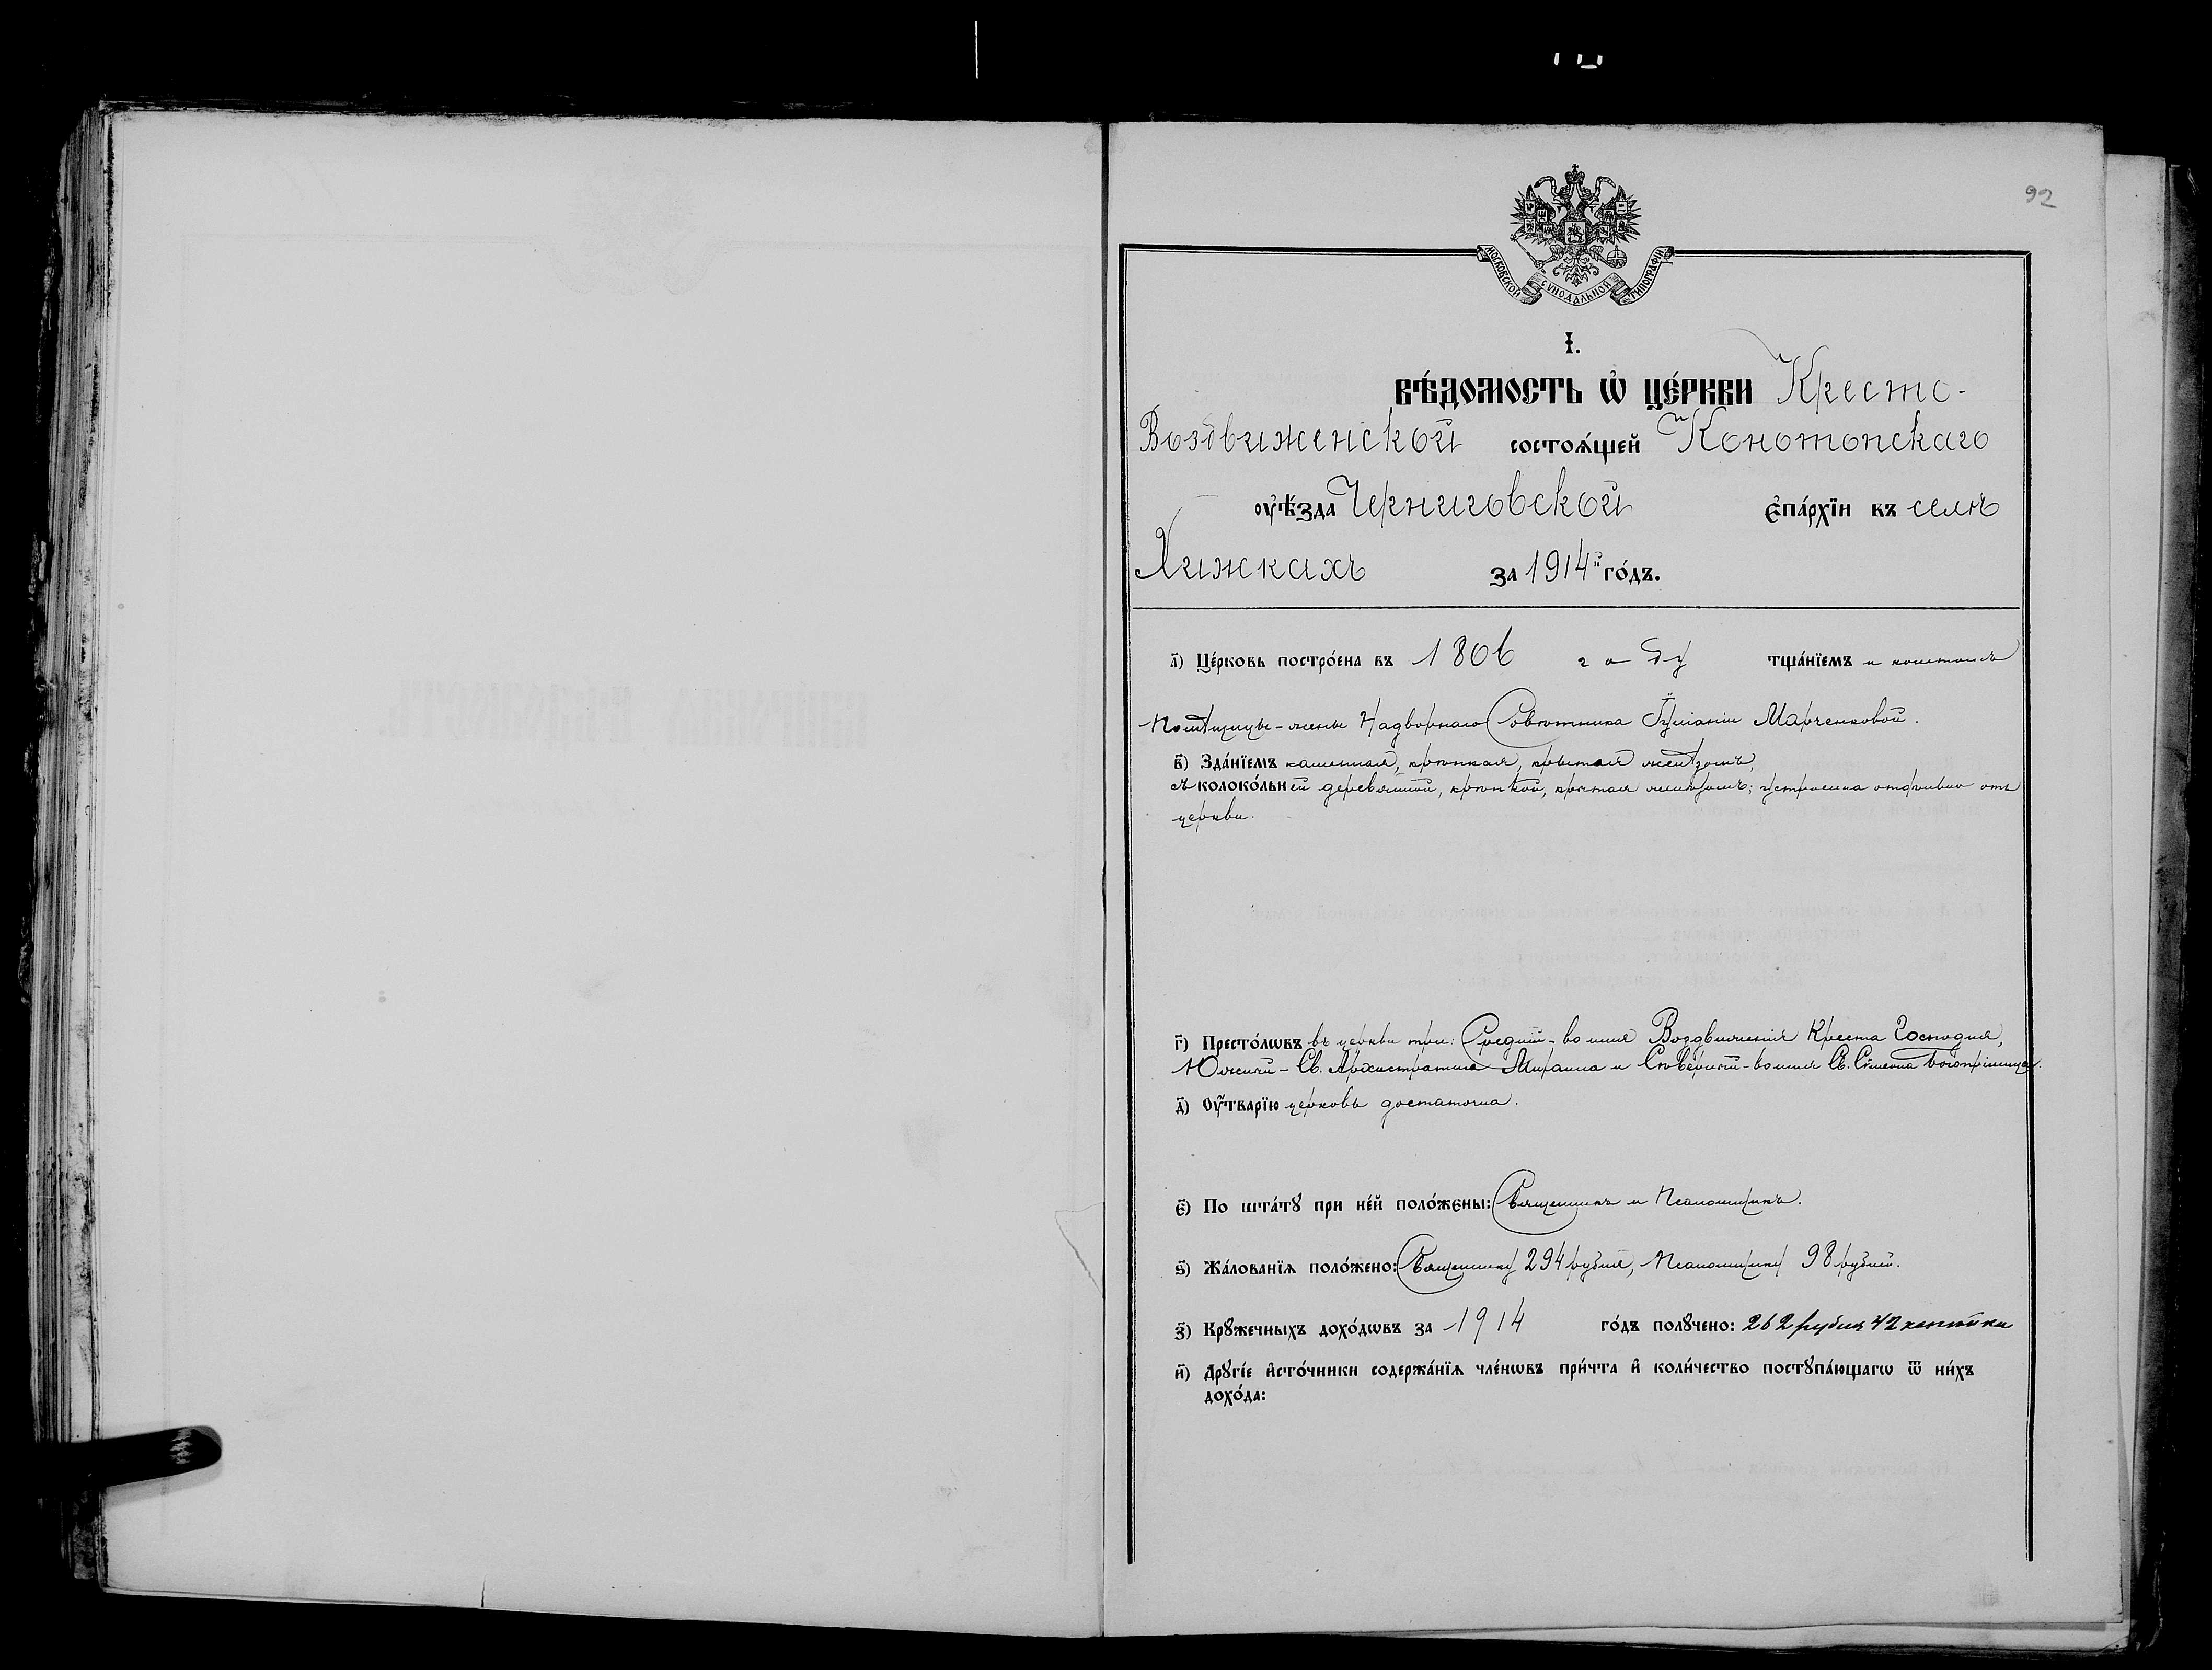 92
МОСКОВСКОЙ СѴНОДАЛЬНОЙ ТИПОГРАФІИ.
І.
ВѢ́ДОМОСТЬ Ѡ҆ ЦЕ́РКВИ Кресто-
Воздвиженской состоѧ́щей Конотопскаго
оу҆ѣ́зда Черниговской є҆па́рхїи въ селѣ
Хижкахъ за 1914й го́дъ.
а҃) Це́рковь постро́ена въ 1806 году тща́нїемъ и коштомъ
Помѣщицы-жены Надворнаго Совѣтника Іуліаніи Марченковой.
в҃) Зда́нїемъ каменная, крѣпкая, крытая желѣзомъ,
съ колоко́льней деревянной, крѣпкой, крытая желѣзомъ; устроена отдѣльно отъ
церкви.
г҃) Престо́лѡвъ въ церкви три: Средній-во имя Воздвиженія Креста Господня,
Южный-Св. Архистратига Михаила и Сѣверный-во имя Св. Сѵмеона Богопріимца.
д҃) Оу҆́тварїю церковь достаточна.
є҃) По шта́тꙋ при не́й поло́жены: Священникъ и Псаломщикъ.
ѕ҃) Жа́лованїѧ поло́жено: Священнику 294 рубля, Псаломщику 98 рублей.
з҃) Крꙋ́жечныхъ дохо́дѡвъ за 1914 го́дъ полꙋ́чено: 262 рубля 42 копѣйки
и҃) Дрꙋгі́е и҆сто́чники содержа́нїѧ чле́нѡвъ при́чта и҆ коли́чество постꙋпа́ющагѡ ѿ ни́хъ
дохо́да: